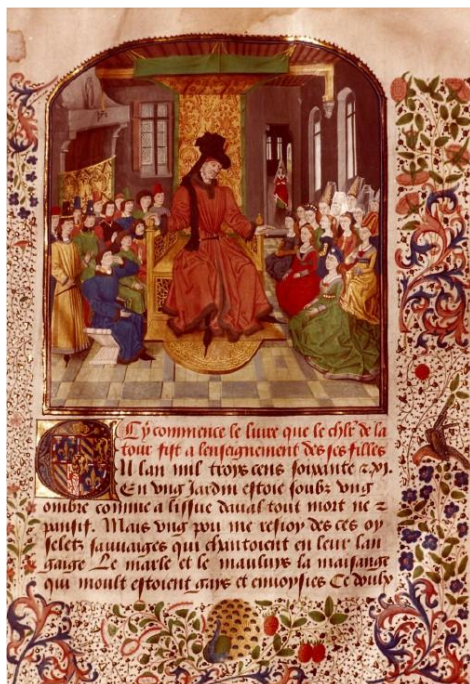 Cy commence le liure que le chlr de la
tour fist a lenseignement des ses filles
Il lan mil troys cens soixante z xj.
En vng Jardin estoie soubz vng
ombre comme a lissue daural tout mort ne z
pansif. Mais vng pou me resioy des ces oy
seletz sauuaiges qui chantoient en leur lan
gaige Le marle et le mauluys la maisange
qui moult estoient gays et enuoysies Ce doulx